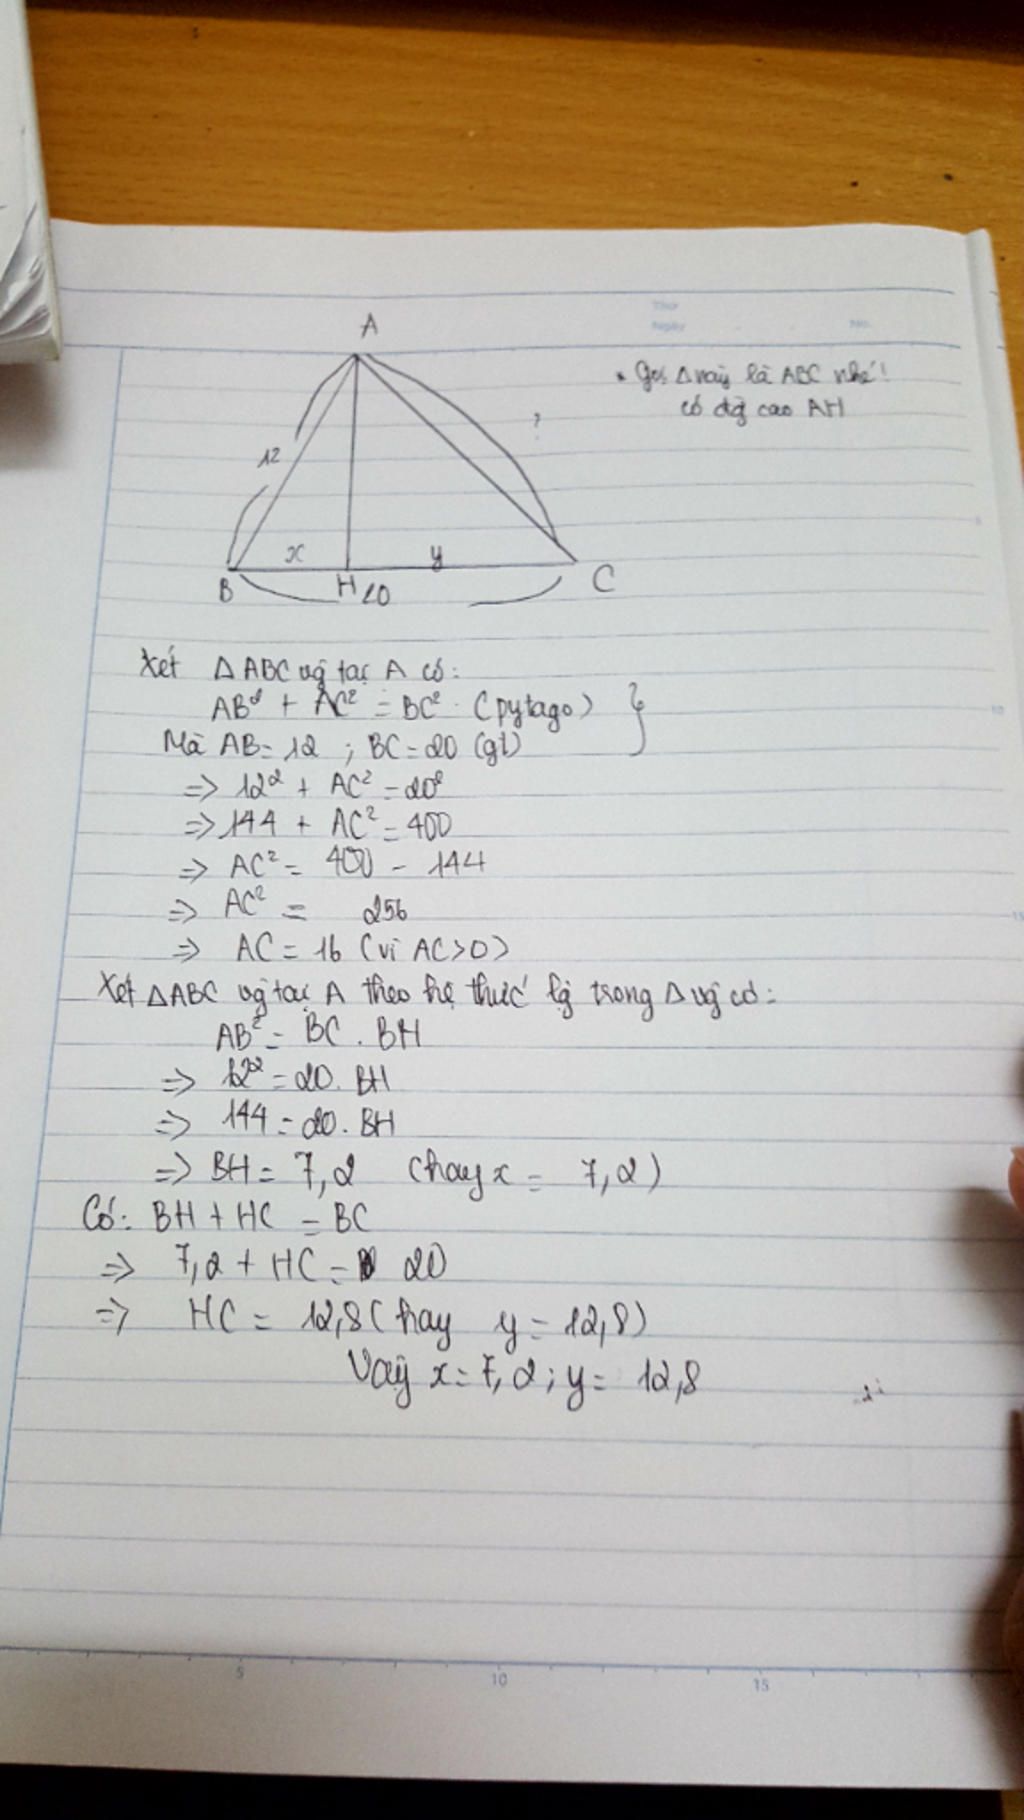 Thứ
Ngày No.
A
* Gọi Δ này là ABC nhé!
có đg cao AH
?
12
x y
B H 20 C
Xét Δ ABC vg tại A có:
AB² + AC² = BC² (pytago) }
Mà AB = 12 ; BC = 20 (gt)
=> 12² + AC² = 20²
=> 144 + AC² = 400
=> AC² = 400 - 144
=> AC² = 256
=> AC = 16 (vì AC>0)
Xét ΔABC vg tại A theo hệ thức lg trong Δ vg có:
AB² = BC . BH
=> 12² = 20. BH
=> 144 = 20. BH
=> BH = 7,2 (hay x = 7,2)
Có: BH + HC = BC
=> 7,2 + HC = 20
=> HC = 12,8 (hay y = 12,8)
Vậy x = 7,2 ; y = 12,8
5 10 15